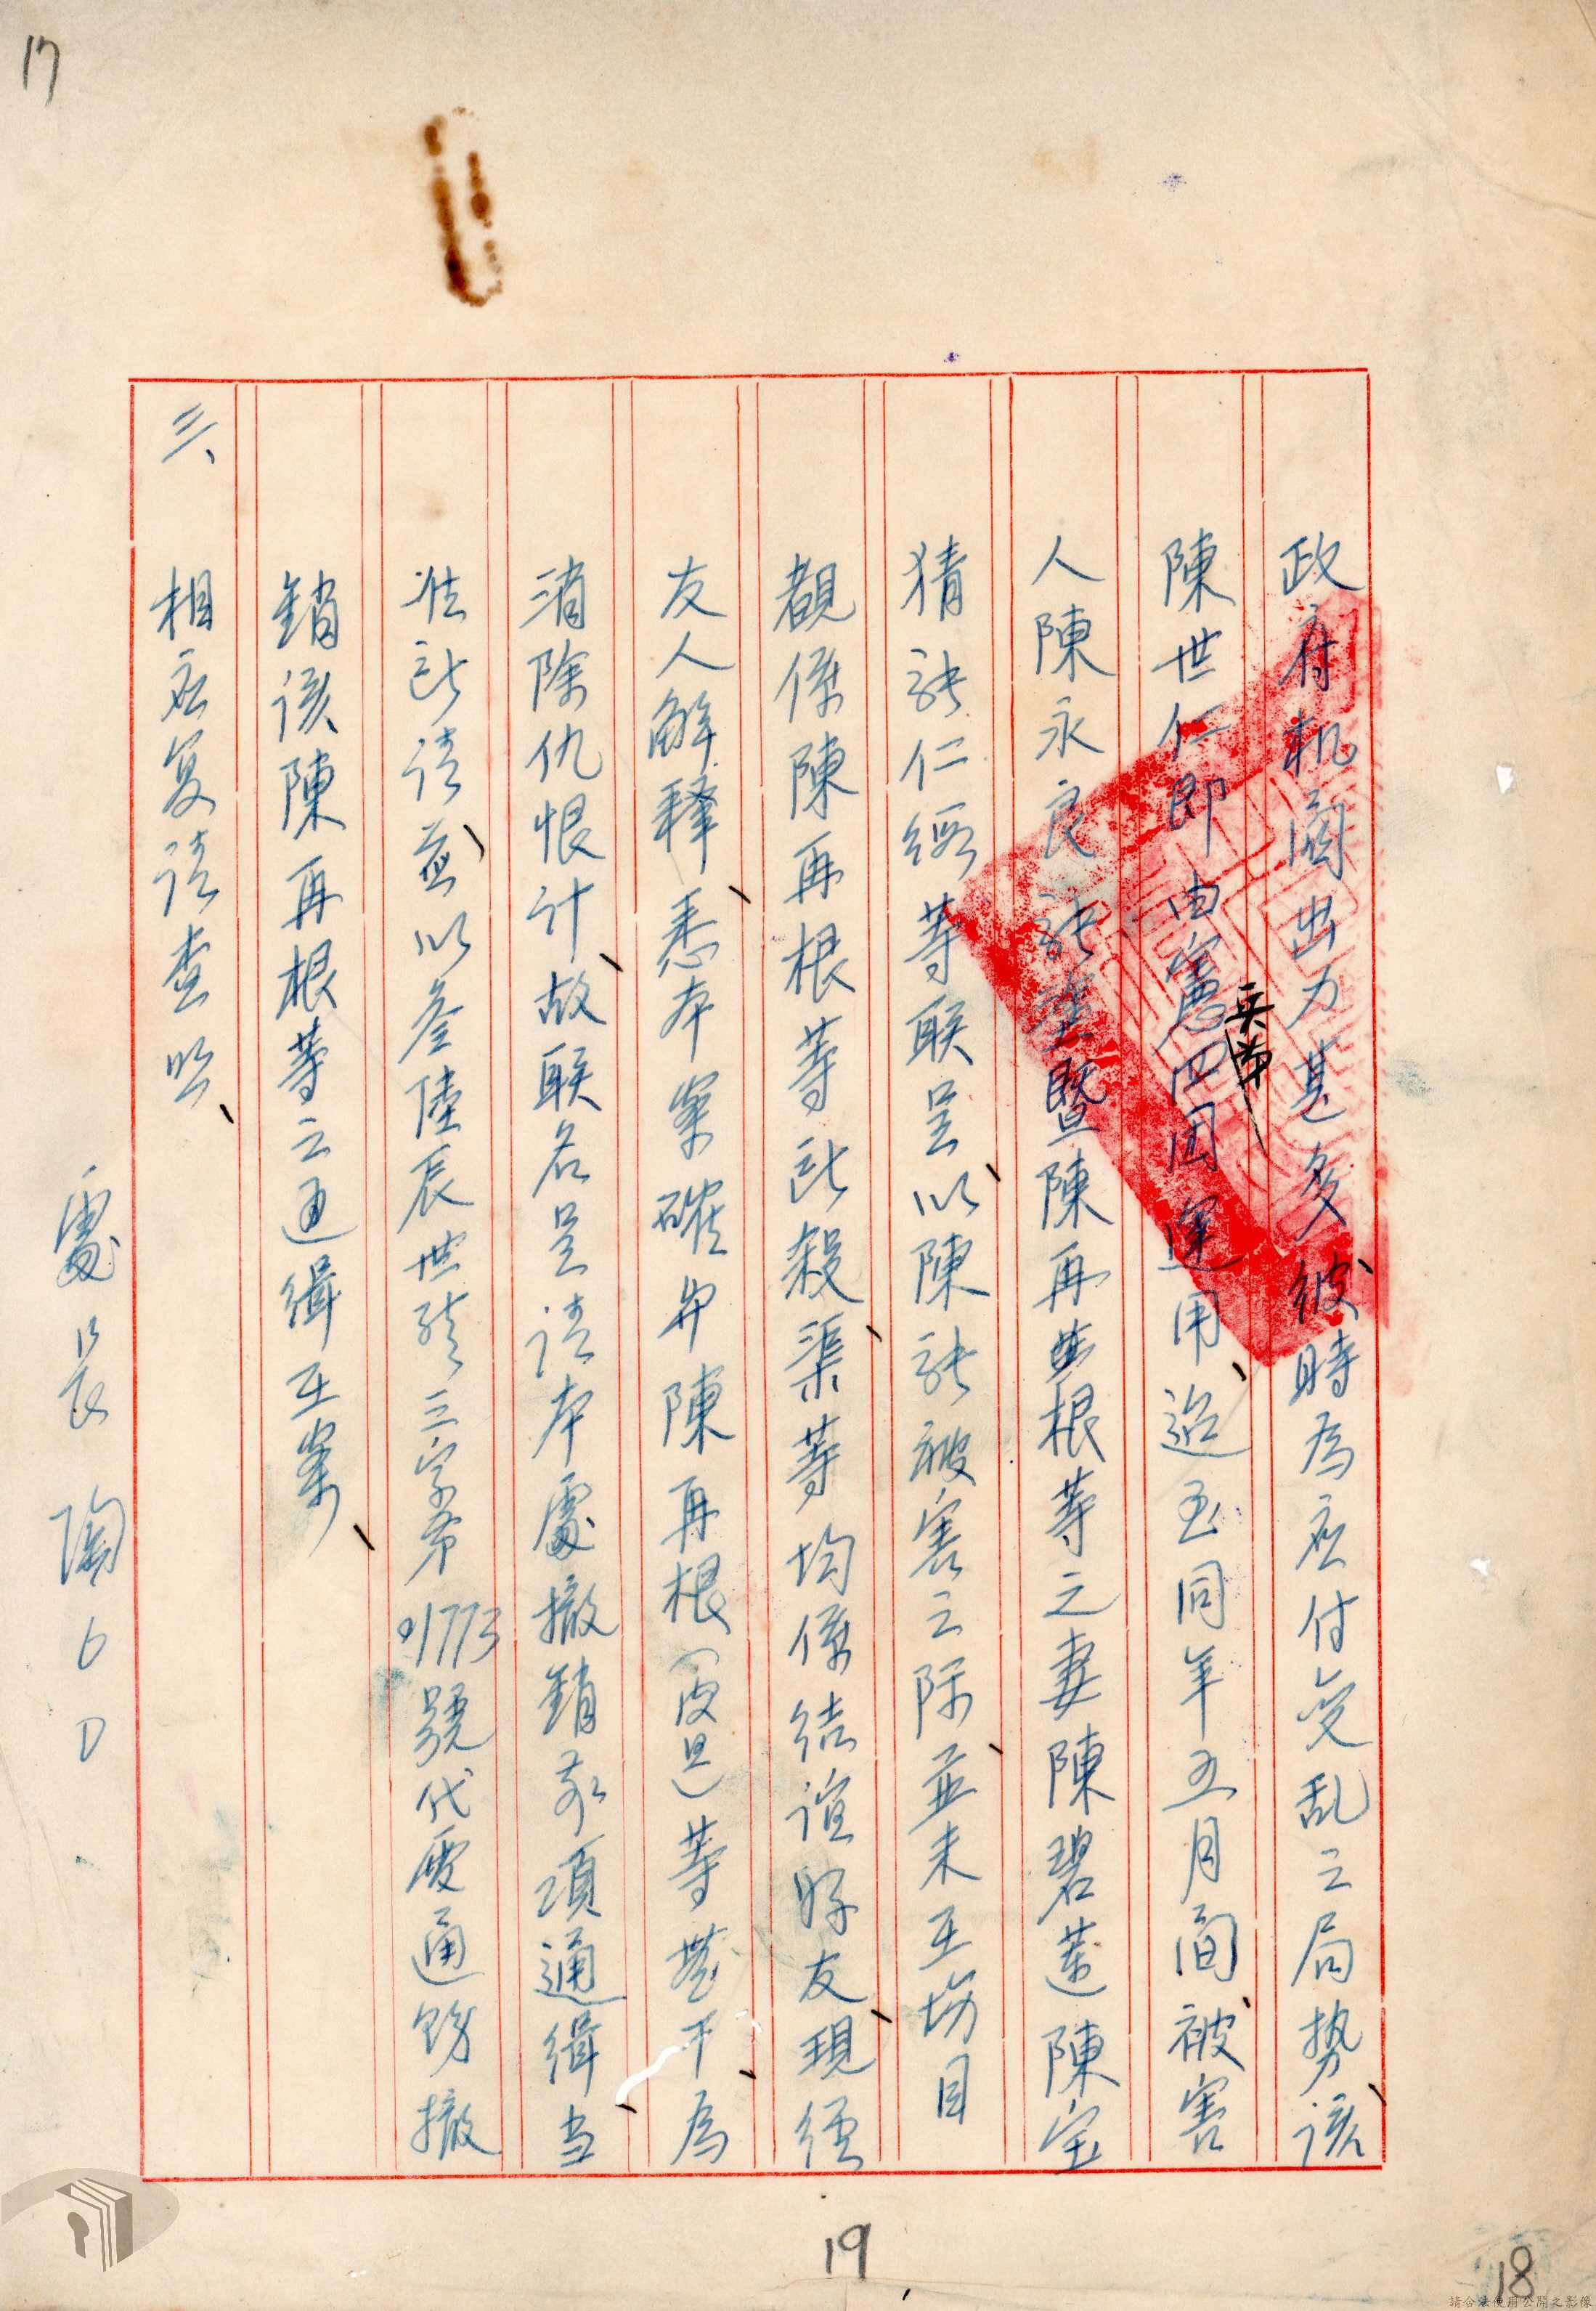 17
政府机関出力甚多彼時為应付变乱之局势該
陳世仁即由憲兵第四团運用迨至同年五月間被害
人陳永良訴 暨陳再與根等之妻陳碧蓮陳宝
猜訴仁經等联呈以陳訴被害之际並未在場目
覩係陳再根等此殺渠等均係結誼好友現經
友人解釋悉本案確与陳再根(皮旦)等無干為
消除仇恨計故联名呈請本處撤銷前項通緝当
准此請並以叁陸辰世 三字第01773號代電通飭撤
銷該陳再根等之通緝在案
三、相应复請查照
處長陶
19
18
請合法使用公開之影像